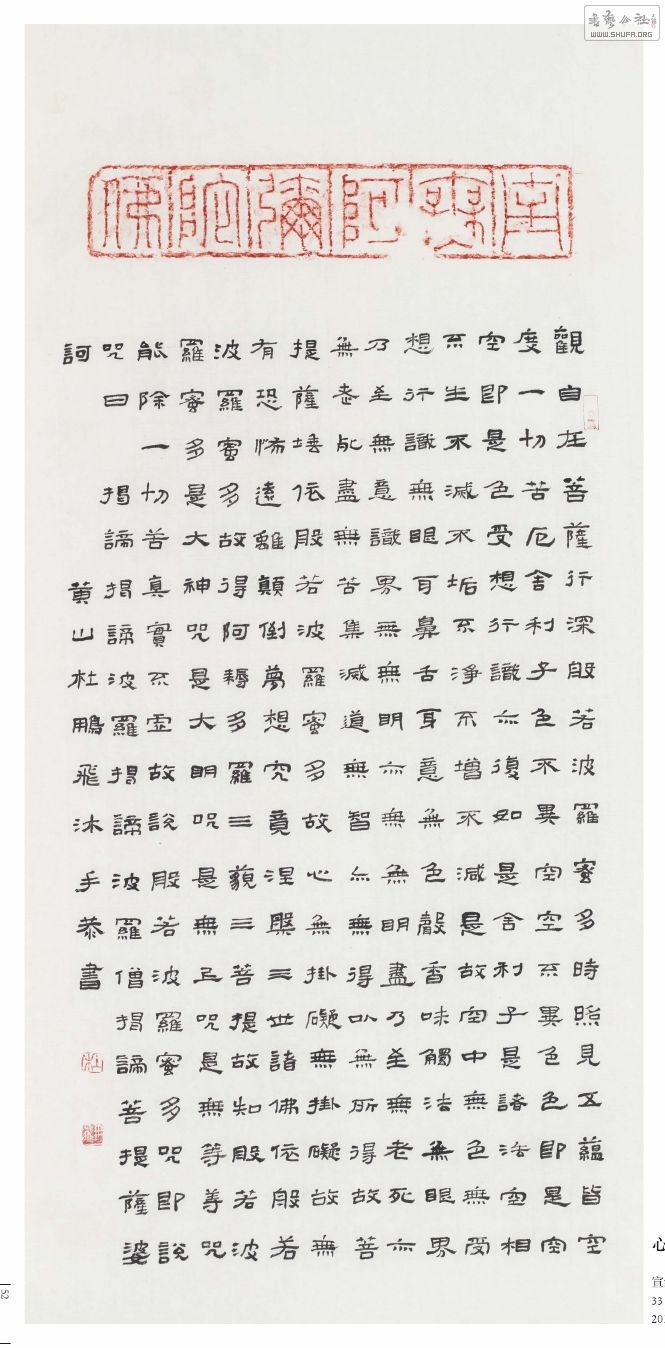 南無阿彌陀佛
觀自在菩薩行深般若波羅蜜多時照見五蘊皆空
度一切苦厄舍利子色不異空空不異色色即是空
空即是色受想行識亦復如是舍利子是諸法空相
不生不滅不垢不淨不增不減是故空中無色無受
想行識無眼耳鼻舌身意無色聲香味觸法無眼界
乃至無意識界無無明亦無無明盡乃至無老死亦
無老死盡無苦集滅道無智亦無得以無所得故菩
提薩埵依般若波羅蜜多故心無掛礙無掛礙故無
有恐怖遠離顛倒夢想究竟涅槃三世諸佛依般若
波羅蜜多故得阿耨多羅三藐三菩提故知般若波
羅蜜多是大神咒是大明咒是無上咒是無等等咒
能除一切苦真實不虛故說般若波羅蜜多咒即說
咒曰 揭諦揭諦波羅揭諦波羅僧揭諦菩提薩婆
訶 黃山杜鵬飛沐手恭書
WWW.SHUFA.ORG
心
宣
33
20
52